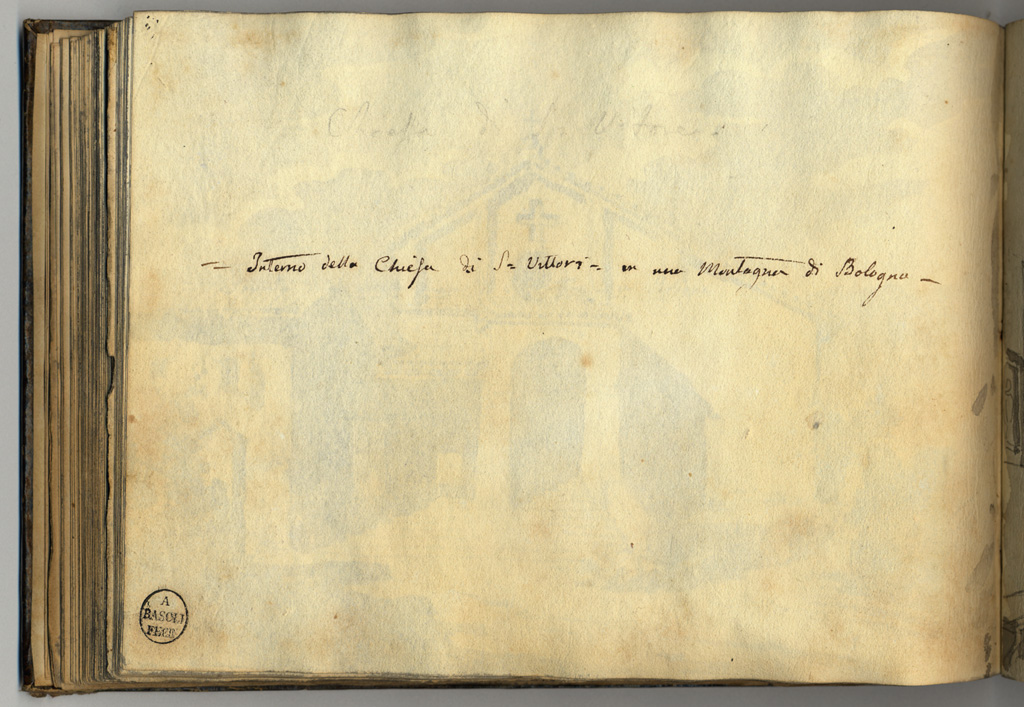 Chiesa di S. Vitore
= Interno della Chiesa di S= Vittore = in una Montagna di Bologna —
A
BASOLI
FECE